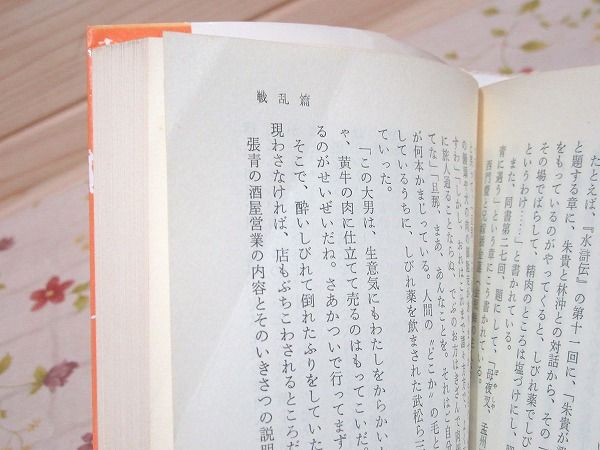 たとえば、『水滸伝』の第十一回に、「朱貴が
と題する章に、朱貴と林沖との対話から、その一
をもっているのがやってくると、しびれ薬でしび
その場でばらして、精肉のところは塩づけにし、
というわけ……」と書かれている。
また、同書第二七回、題にして、「母夜叉、孟州
青に遇う」という章にこう書かれている。
に旅人通ることならぬ、
てな」「旦那、まあ、あんなことを。それはご自分
が何本かまじっている。人間の〝どこか〟の毛と
しているうちに、しびれ薬を飲まされた武松ら三
ていった。
「この大男は、生意気にもわたしをからかい
ゃ、黄牛の肉に仕立てて売るのはもってこいだ。
るのがせいぜいだね。さあかついで行ってまず
そこで、酔いしびれて倒れたふりをしていた
現わさなければ、店もぶちこわされるところだ
張青の酒屋営業の内容とそのいきさつの説明
戦乱篇